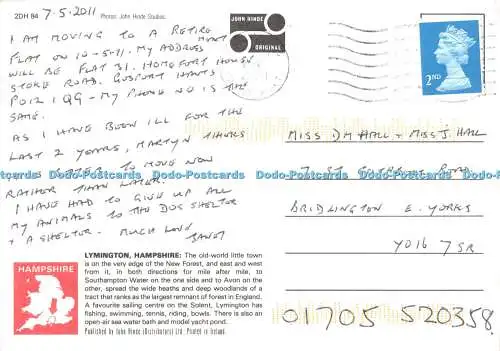 2DH 84
7-5-2011
Photos: John Hinde Studios.
JOHN HINDE
ORIGINAL
2ND
I AM MOVING TO A RETIRE
MENT
FLAT ON 10-5-11. MY ADDRESS
WILL BE FLAT 31. HOMEFORT HOUSE
STOKE ROAD. GOSPORT HANTS
PO12 1QG - MY PHONE NO IS THE
SAME.
AS I HAVE BEEN ILL FOR THE
LAST 2 YEARS, MARTYN THINKS
BETTER TO MOVE NOW
RATHER THAN LATER.
I HAVE HAD TO GIVE UP ALL
MY ANIMALS TO THE DOG SHELTER
+ A SHELTER. MUCH LOVE
JANET
MISS DM HALL + MISS J. HALL
7 ST ROAD
BRIDLINGTON E. YORKS
YO16 7SR
01705 520358
HAMPSHIRE
LYMINGTON, HAMPSHIRE: The old-world little town
is on the very edge of the New Forest, and east and west
from it, in both directions for mile after mile, to
Southampton Water on the one side and to Avon on the
other, spread the wide heaths and deep woodlands of a
tract that ranks as the largest remnant of forest in England.
A favourite sailing centre on the Solent, Lymington has
fishing, swimming, tennis, riding, bowls. There is also an
open-air sea water bath and model yacht pond.
Published by John Hinde (Distributors) Ltd. Printed in Ireland.
Dodo-Postcards Dodo-Postcards Dodo-Postcards Dodo-Postcards Dodo-Postcards